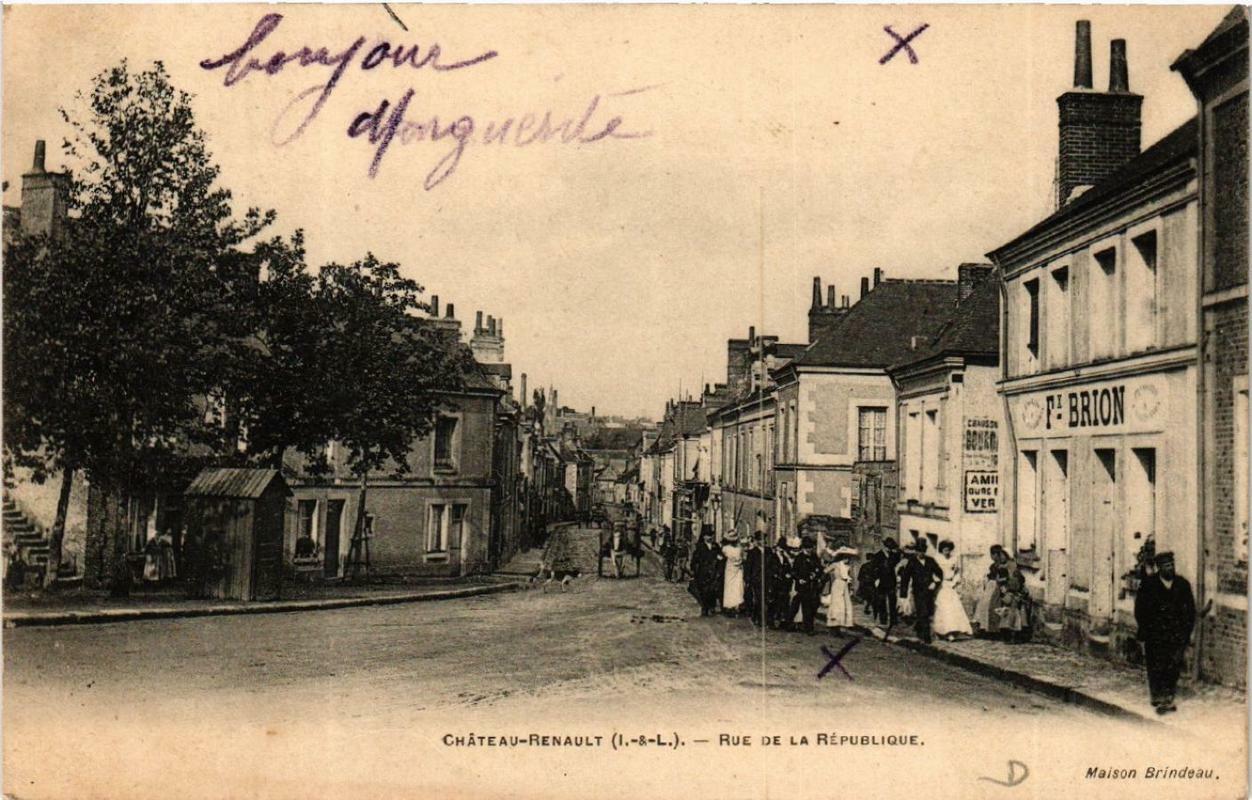 bonjour
Marguerite
Fx BRION
CHAUSS
AMI
OURS E
VER
CHÂTEAU-RENAULT (I.-&-L.). — RUE DE LA RÉPUBLIQUE.
D
Maison Brindeau.